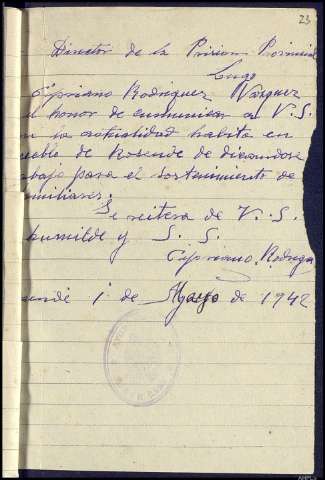 23
Director de la Prision Provincial
Lugo
Cipriano Rodriguez Vazquez
l honor de comunicar a V. S.
n la actualidad habita en
ueblo de Rosende de dicandose
abajo para el sostenimiento de
amiliares.
Se reitera de V. S.
humilde y S. S.
Cipriano Rodrigu
1 de Mayo de 1942